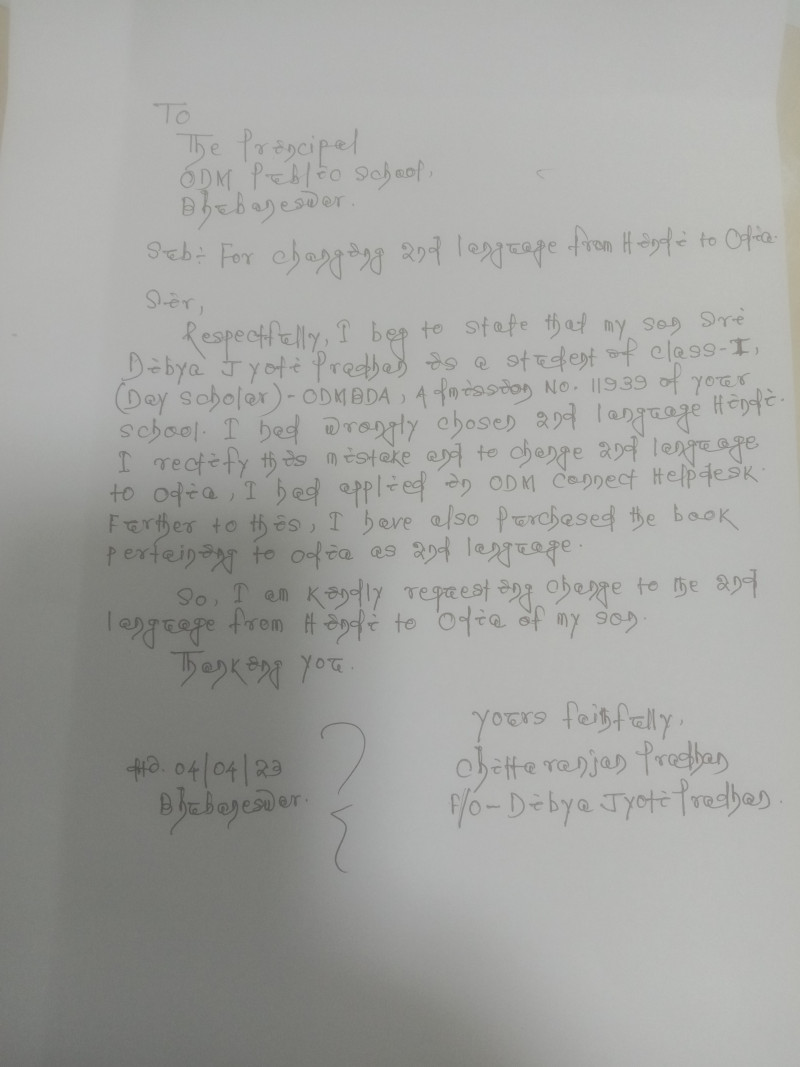 To
The Principal
ODM Public School,
Bhubaneswar.
Sub:- For changing 2nd language from Hindi to Odia.
Sir,
Respectfully, I beg to state that my son Sri
Dibya Jyoti Pradhan is a student of class-I,
(Day scholar) - ODMBDA, Admission No. 11939 of your
school. I had wrongly chosen 2nd language Hindi.
I rectify this mistake and to change 2nd language
to Odia, I had applied in ODM Connect Helpdesk.
Further to this, I have also purchased the book
pertaining to Odia as 2nd language.
So, I am kindly requesting change to the 2nd
language from Hindi to Odia of my son.
Thanking you.
Yours faithfully,
Chittaranjan Pradhan
F/O - Dibya Jyoti Pradhan.
04/04/23
Bhubaneswar.